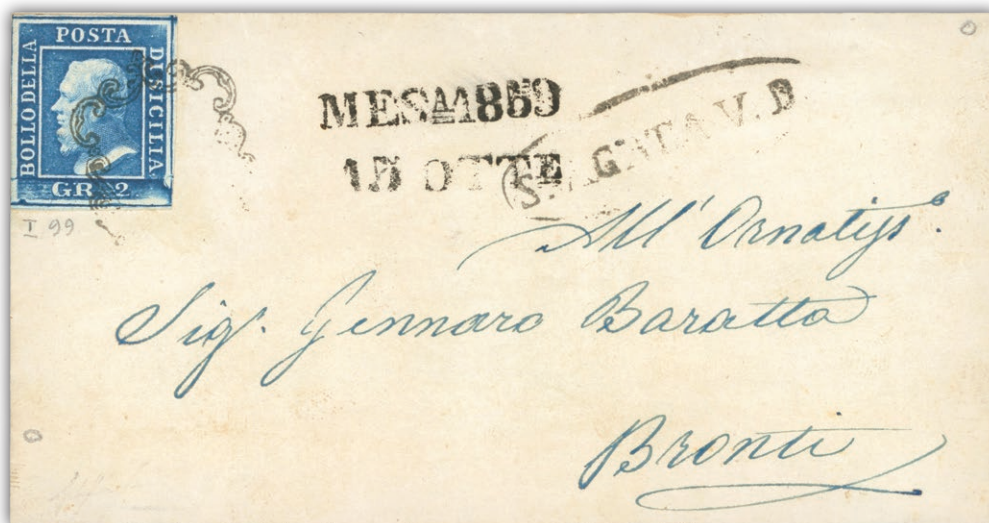 POSTA
BOLLO DELLA
DI SICILIA
GR 2
I 99
MESAA1859
15 OTTE
S. AGATA V. D
All' Ornatiss.
Sig. Gennaro Baratta
Bronti